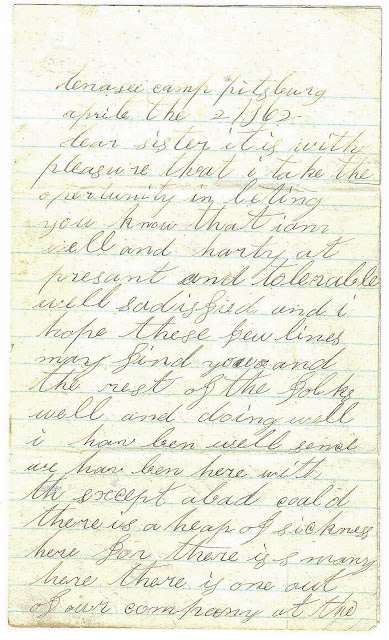 tenasee camp pittsburg
aprile the 2 1862
dear sister it is with
pleasure that i take the
opertunity in leting
you know that i am
well and harty at
presant and tolerable
well sadisfied and i
hope these few lines
may find you and
the rest of the folks
well and doing well
i hav ben well sence
we hav ben here with
th except a bad coald
there is a heap of sickness
here for there is s many
here there is one out
of our company at the